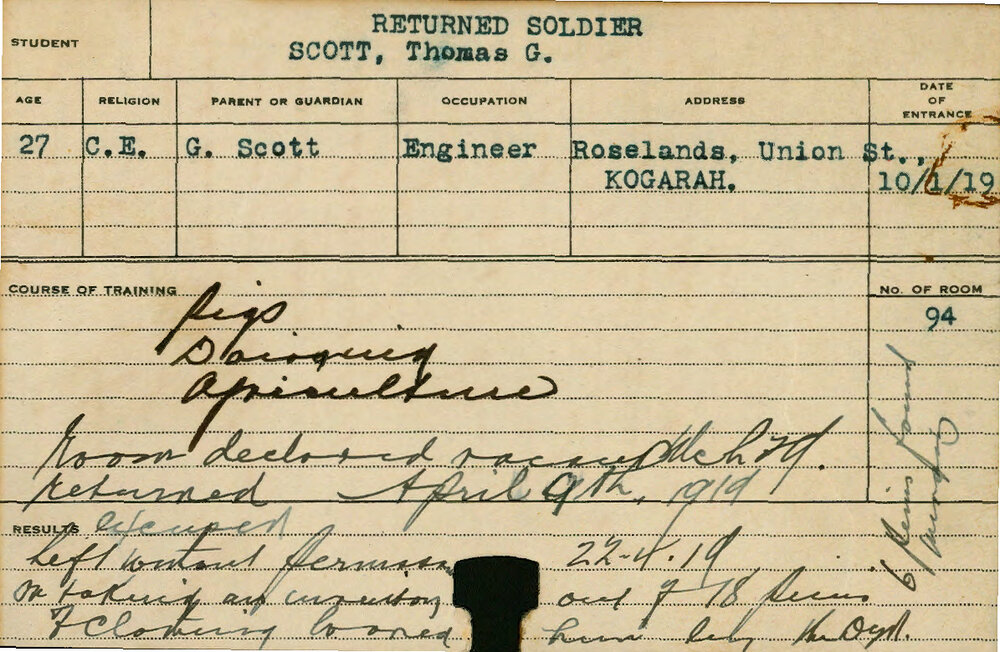 STUDENT
RETURNED SOLDIER
SCOTT, Thomas G.
AGE RELIGION PARENT OR GUARDIAN OCCUPATION ADDRESS DATE OF ENTRANCE
27 C.E. G. Scott Engineer Roselands, Union St.,
KOGARAH. 10/1/19
COURSE OF TRAINING
No. OF ROOM
94
Pigs
Dairying
Agriculture
Room declared vacant Mch 24.
Returned April 9th, 1919
RESULTS
Left without permission 22-4-19
on taking an inventory out of 18 items
of clothing loaned him by the Dept.
6 items found missing